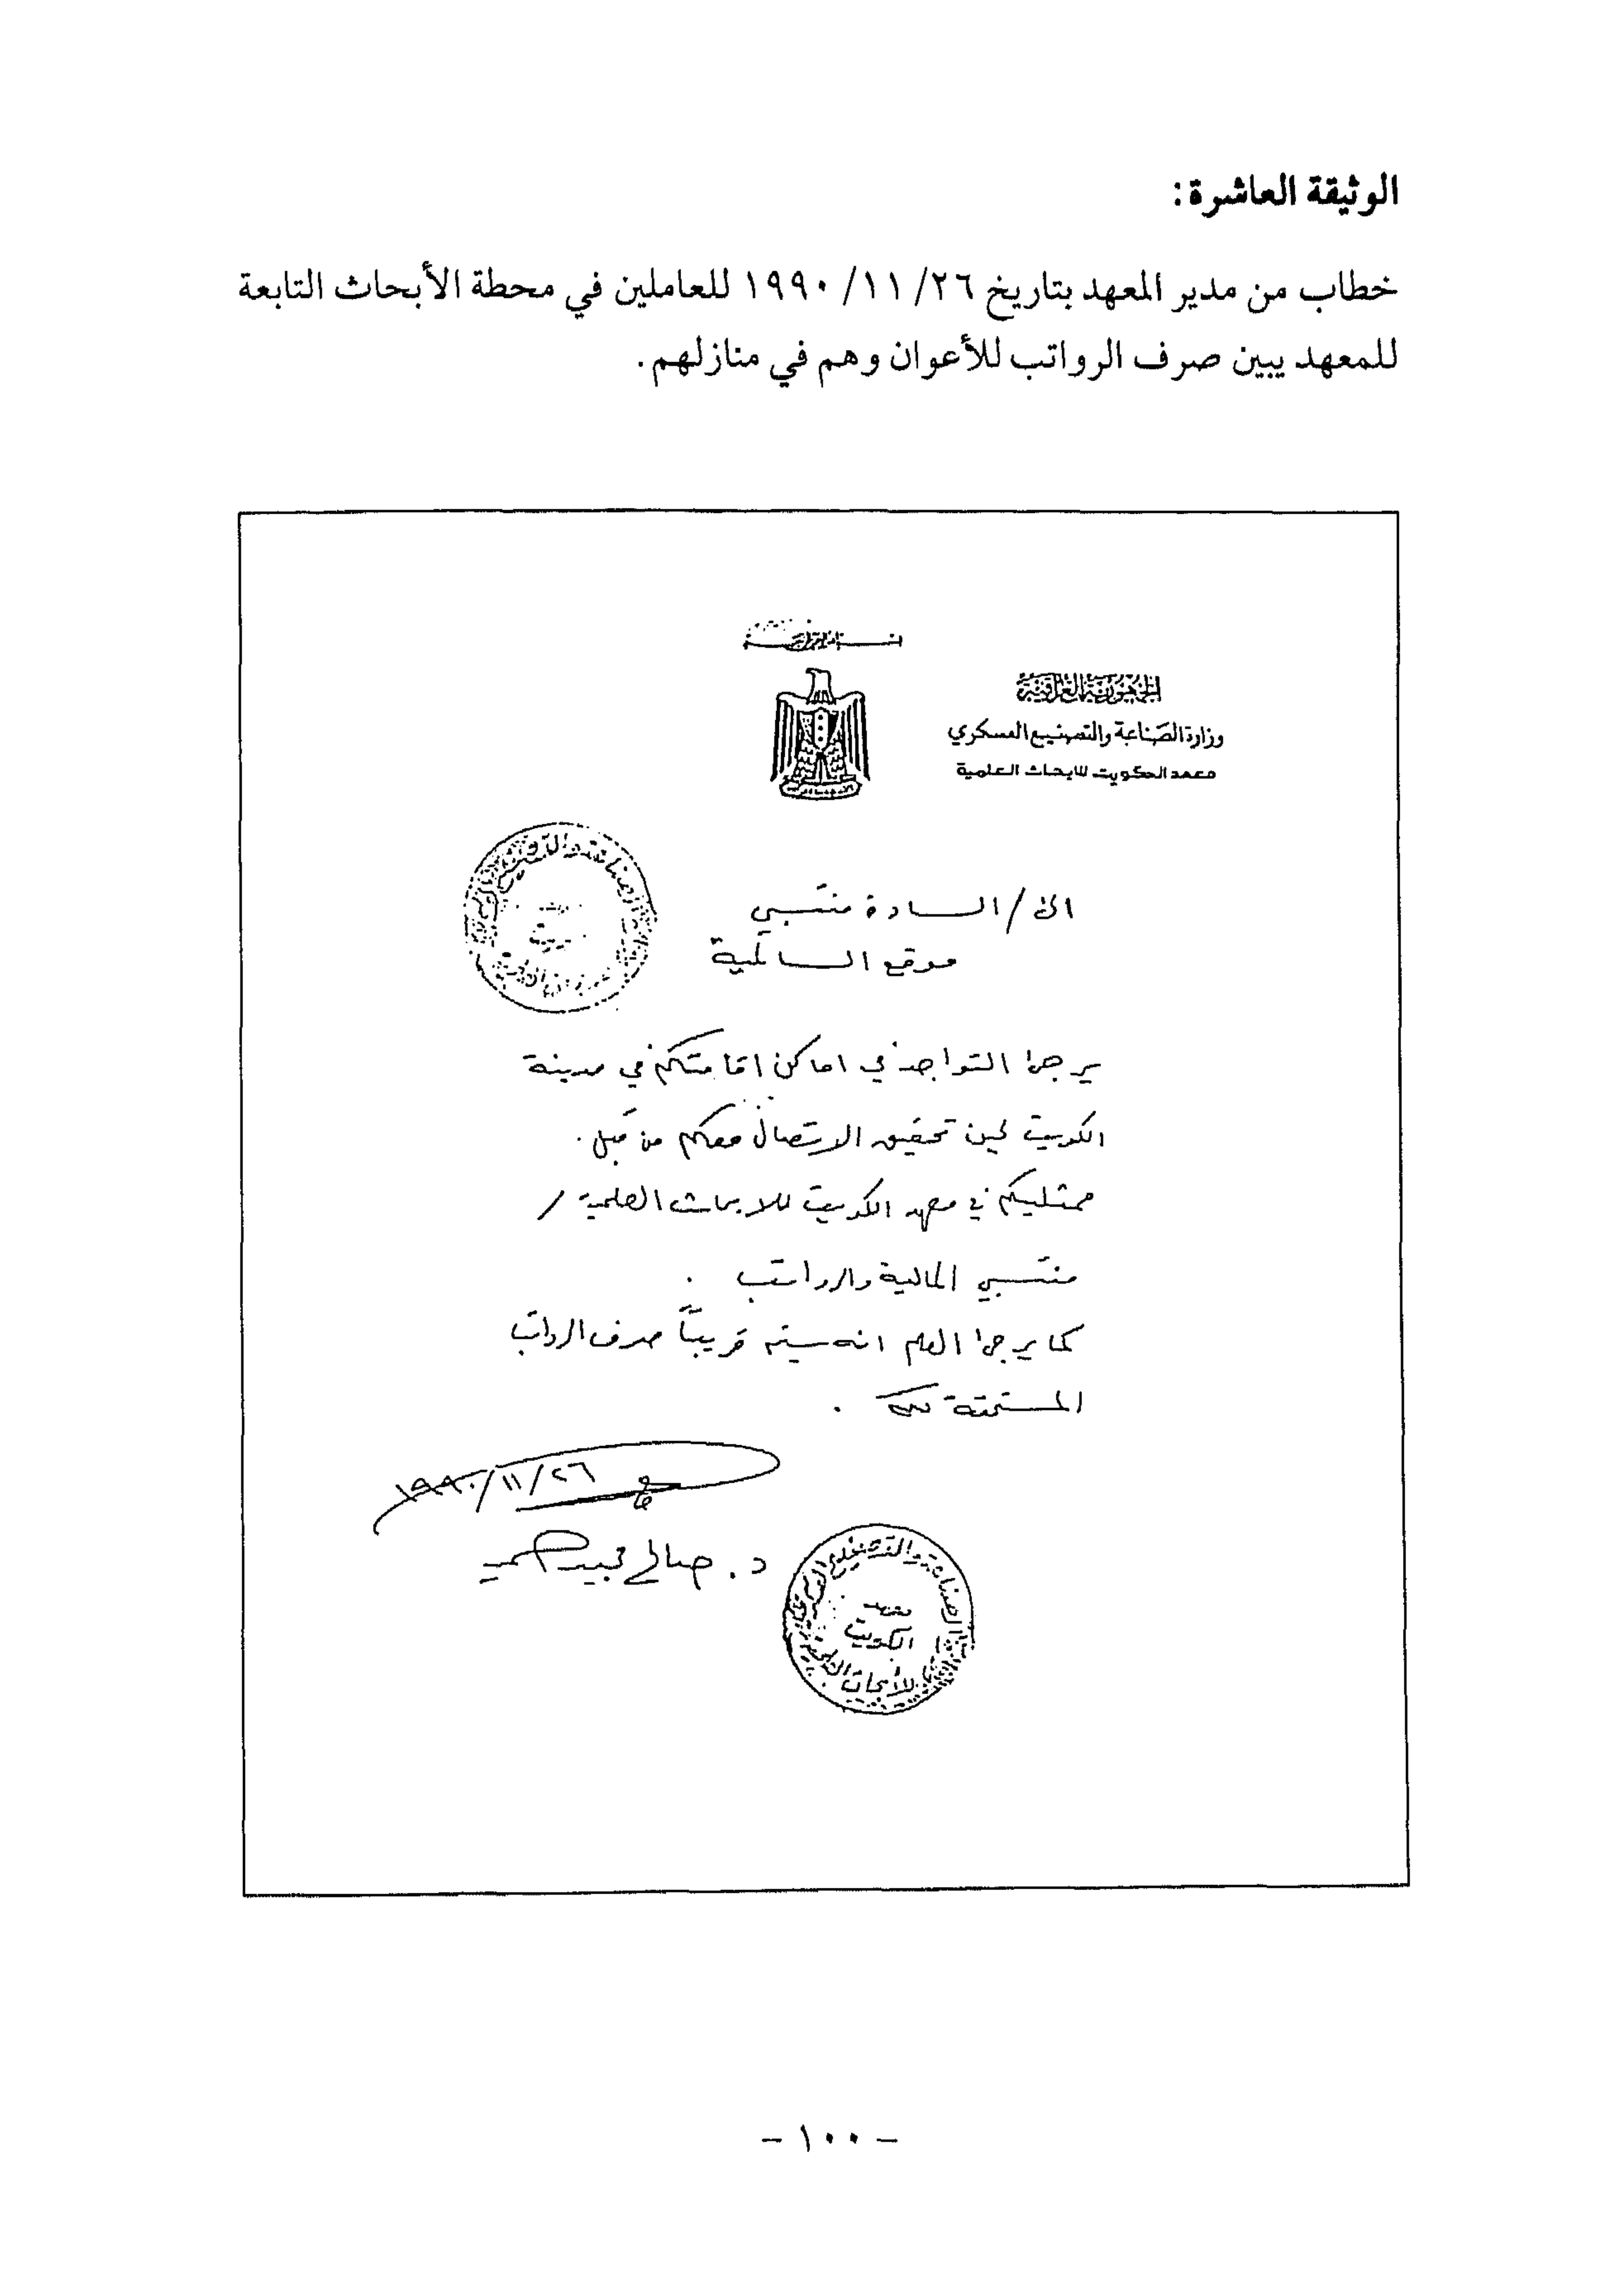 الوثيقة العاشرة:
خطاب من مدير المعهد بتاريخ ٢٦/ ١١/ ١٩٩٠ للعاملين في محطة الأبحاث التابعة
للمعهد يبين صرف الرواتب للأعوان وهم في منازلهم.
الجمهورية العراقية
وزارة الصناعة والتصنيع العسكري
معهد الكويت للابحاث العلمية
الى / السادة منتسبي
موقع السالمية
يرجى التواجد في اماكن اقامتكم في مدينة
الكويت لحين تحقيق الاتصال معكم من قبل
ممثليكم في معهد الكويت للابحاث العلمية /
منتسبي المالية والرواتب .
كما يرجى العلم انه سيتم قريباً صرف الرواتب
المستحقة لكم .
١٩٩٠/١١/٢٦
د. صالح مجيد
معهد
الكويت
للأبحاث
- ١٠٠ -